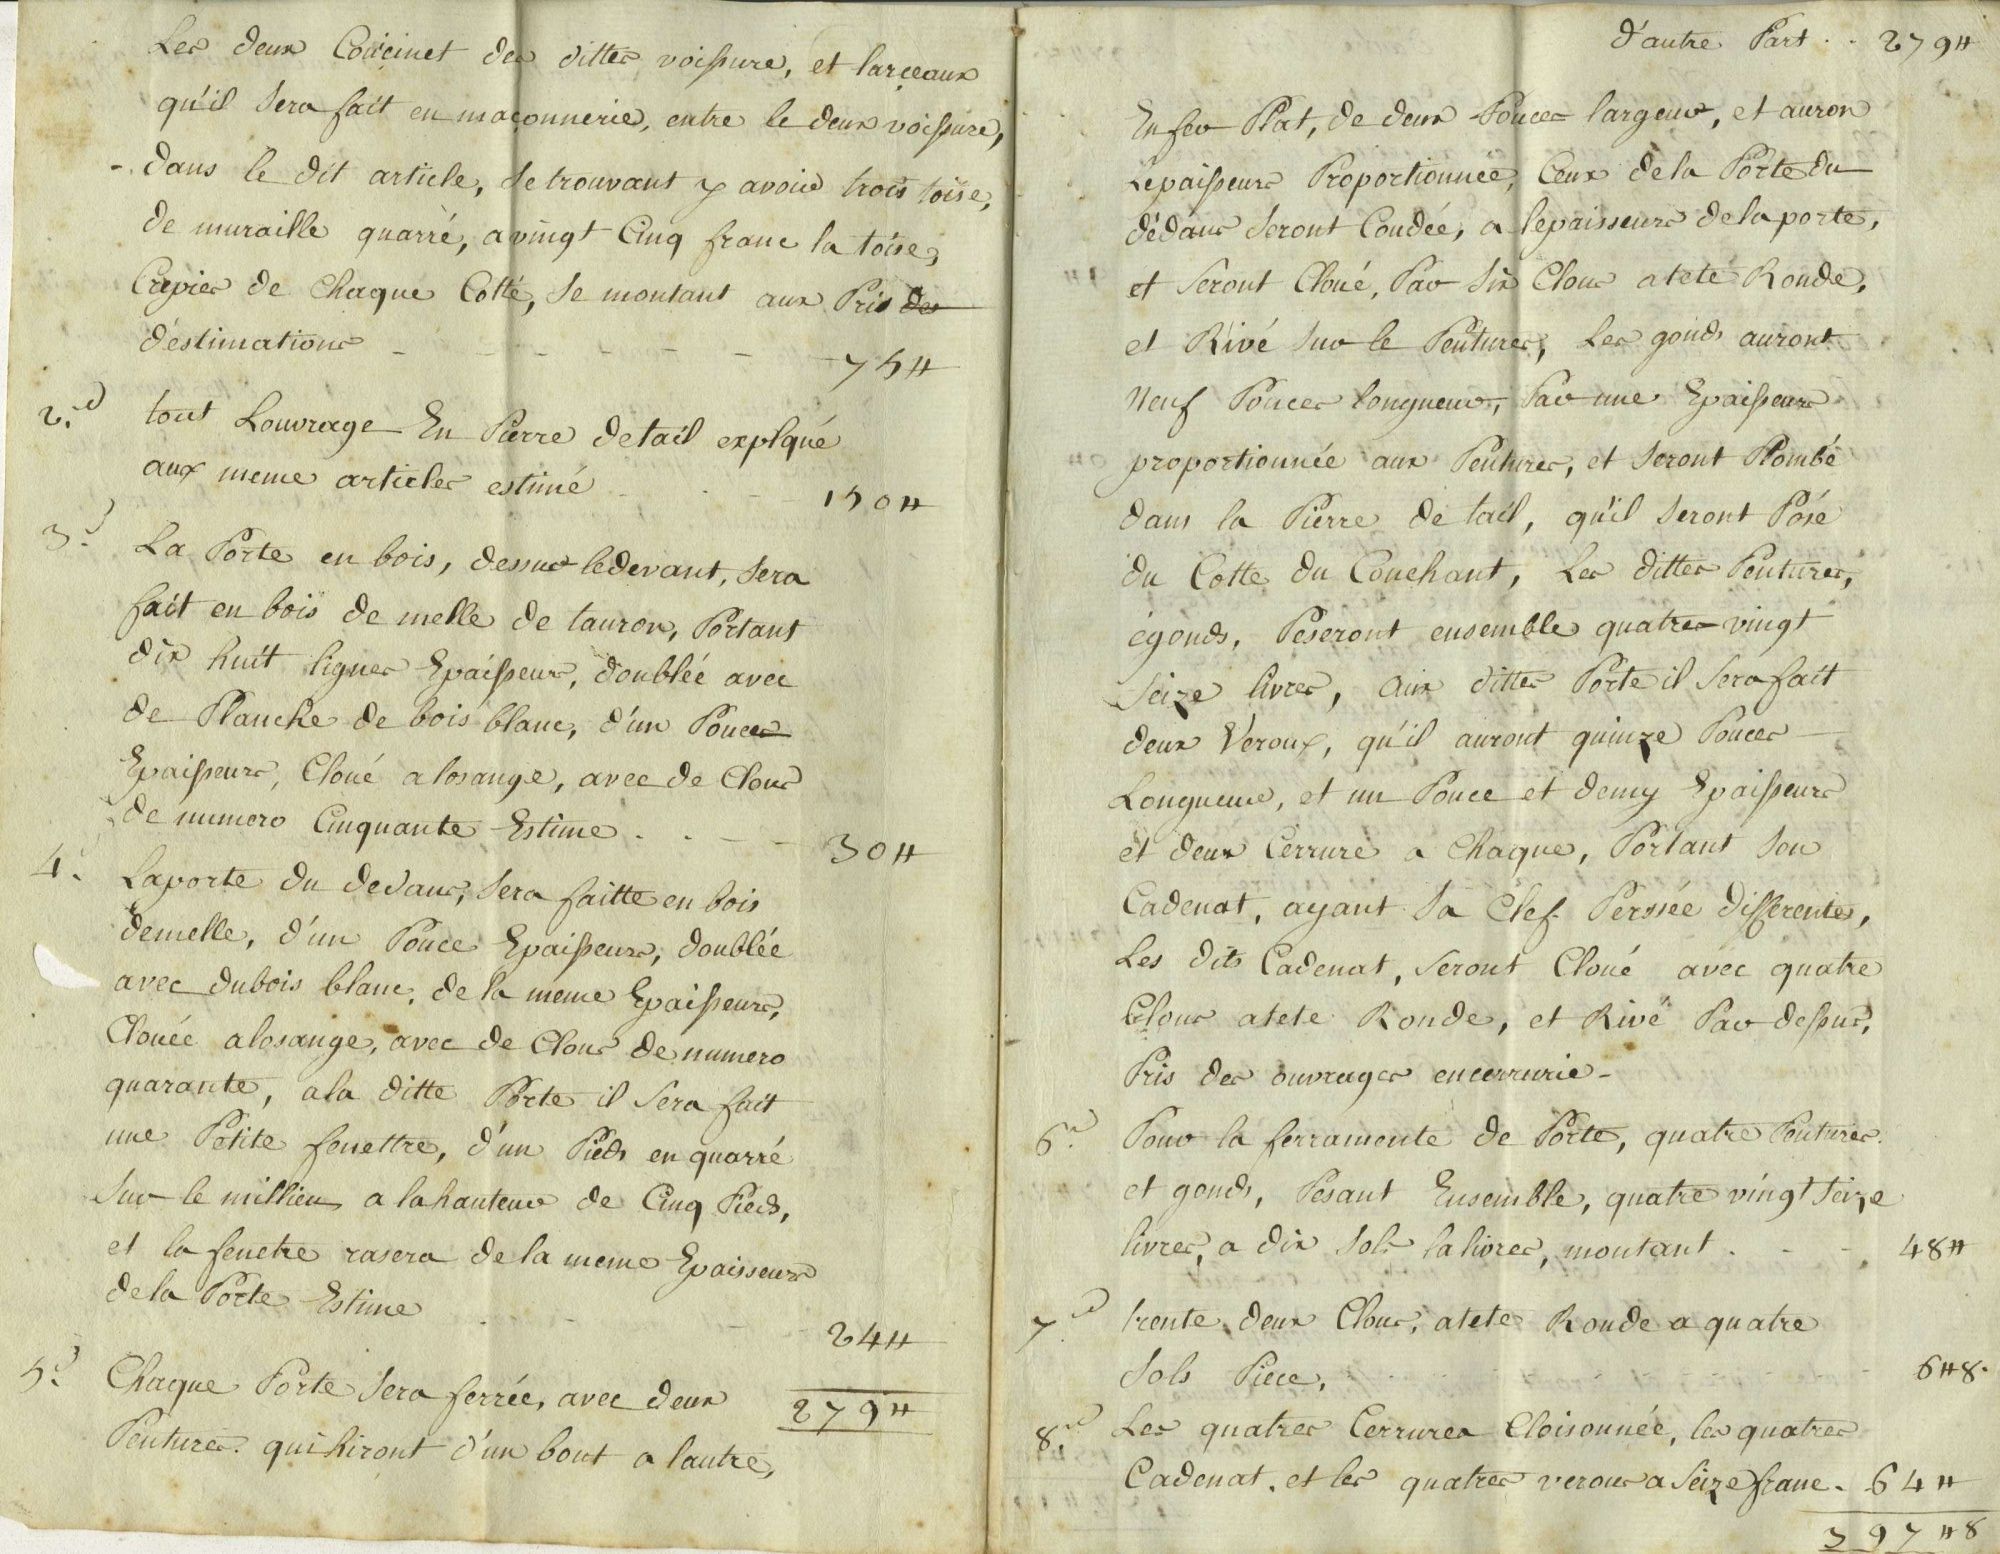 Les deux Coucinet des dittes voissure, et larceaux
qu'il Sera fait en maçonnerie, entre le deux voissure,
dans le dit article, Se trouvant y avoir trois toise,
de muraille quarré, a vingt Cinq franc la toise,
Crepies de Chaque Cotté, Se montant aux Pris des
déstimations 75₶
2.d tout Louvrage En Pierre de tail explqué
aux meme articles estimé 150₶
3.d La Porte en bois, dessus le devant, Sera
fait en bois de melle de tauron, Portant
dix huit lignes Epaisseur, doubléé avec
de Planche de bois blanc, d'un Pouces
Epaisseurs, Cloué a losange, avec de Clous
de numero Cinquante Estime 30₶
4. La porte du dedans, Sera faitte en bois
de melle, d'un Pouce Epaisseurs, doublée
avec du bois blanc, de la meme Epaisseurs,
Clouée a losange, avec de Clous de numero
quarante, a la ditte Porte il Sera fait
une Petite fenettre, d'un Pieds en quarré
Sur le millieu a la hauteur de Cinq Pieds,
et la fenetre rasera de la meme Epaisseurs
de la Porte Estime 24₶
5.d Chaque Porte Sera ferrée, avec deux 279₶
Pentures qui hiront d'un bout a lautre,
d'autre Part . . 279₶
En fer Plat, de deux Pouces largeur, et auron
Lépaisseurs Proportionnée, Ceux de la Porte du
dédans Seront Coudée, a lepaisseurs de la porte,
et Seront Cloué, Par Six Clous a tete Ronde,
et Rivé Sur le Pentures, Les gonds auront
Neuf Pouces longueur, Par une Epaisseurs
proportionnée aux Pentures, et Seront Plombé
dans la Pierre de tail, qu'il Seront Posé
du Cotte du Couchant, Les dittes Pentures,
égonds, Peseront ensemble quatres vingt
Seize livres, aux dittes Porte il Sera fait
deux Veroux, qu'il auront quinze Pouces
Longueur, et un Pouce et demy Epaisseurs
et deux Cerrure a Chaque, Portant Son
Cadenat, ayant Sa Clef Perssée differente,
Les dits Cadenat, Seront Cloué avec quatre
Clous a tete Ronde, et Rivé Par dessus,
Pris des ouvrages encerrurie -
6.d Pour la ferramente de Porte, quatre Pentures
et gonds, Pesant Ensemble, quatre vingt Seize
livres, a dix Sols la livres, montant 48₶
7.d trente deux Clous, a tete Ronde a quatre
Sols Piece, 6₶8.
8.d Les quatres Cerrures Cloisonnée, les quatres
Cadenat, et les quatres verous a Seize franc. 64₶
397₶8